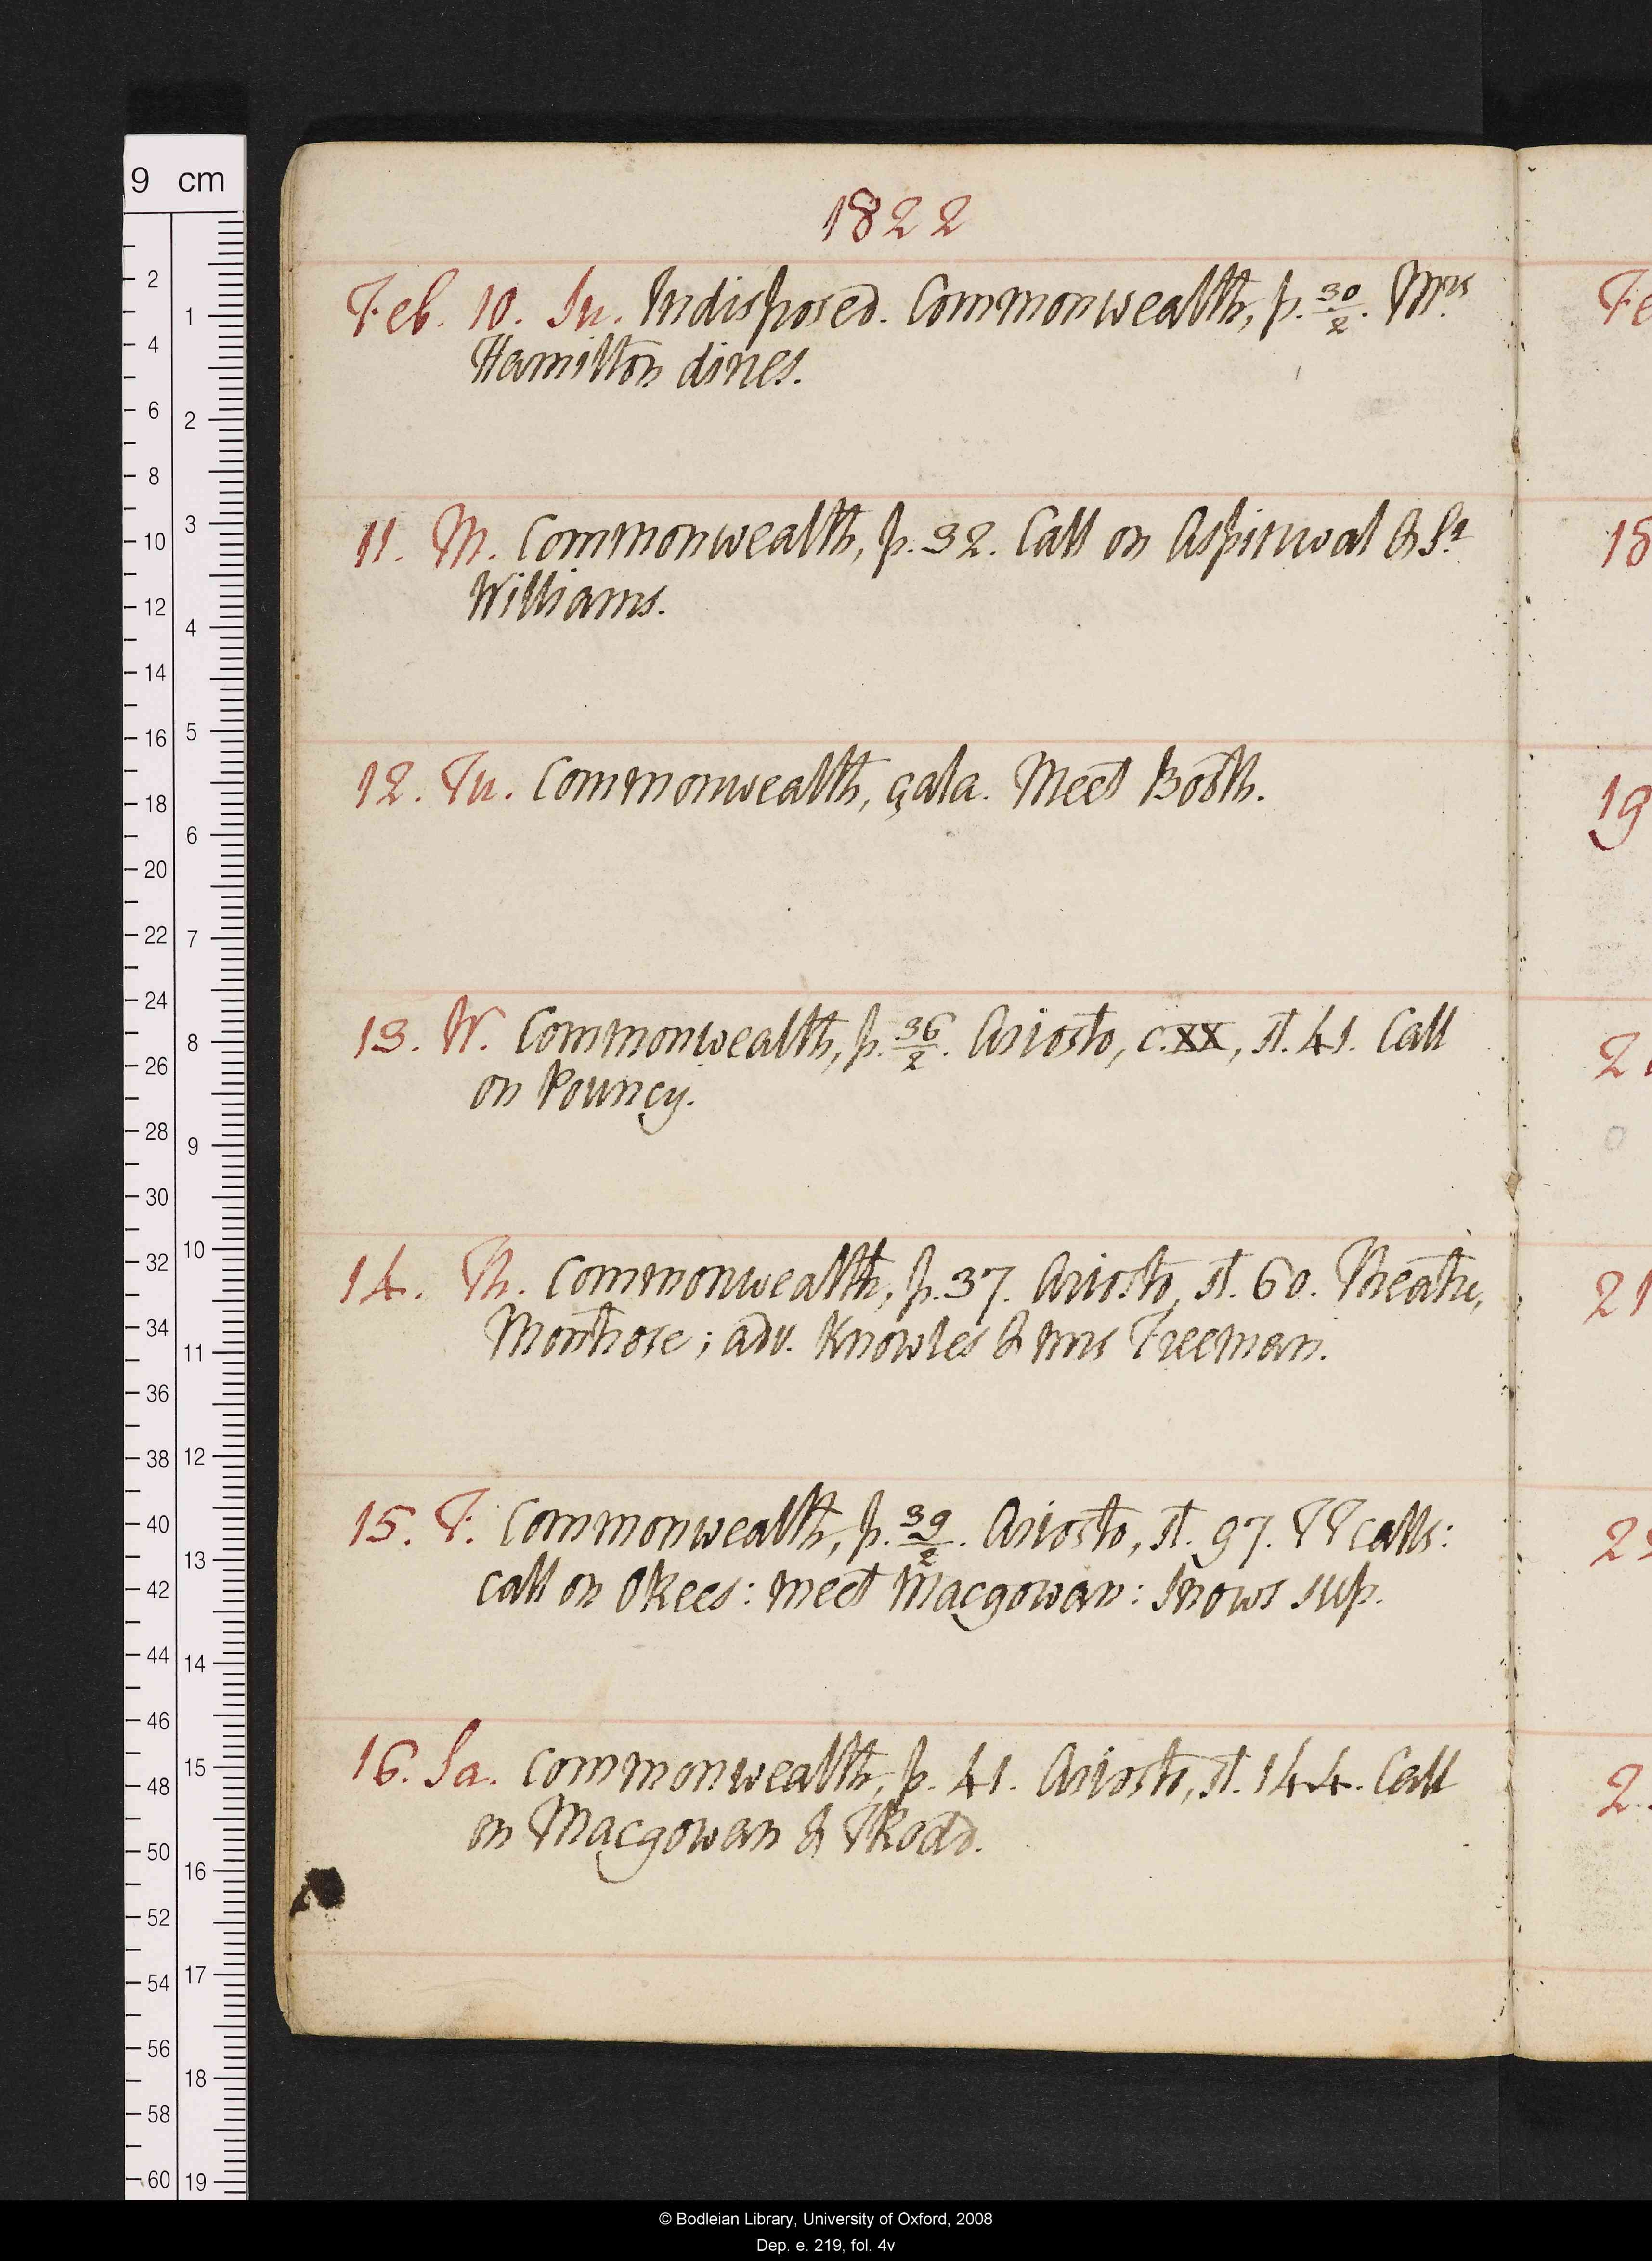 1822
Feb. 10. Su. Indisposed. Commonwealth, p. 30/2. Mrs
Hamilton dines.
11. M. Commonwealth, p. 32. Call on Aspinwal & Sa
Williams.
12. Tu. Commonwealth, çala. Meet Booth.
13. W. Commonwealth, p. 36/2. Ariosto, c. XX, st. 41. Call
on Pouncy.
14. Th. Commonwealth, p. 37. Ariosto, st. 60. Theatre,
Montrose; adv. Knowles & mrs Freeman.
15. F. Commonwealth, p. 39/2. Ariosto, st. 97. TT calls:
call on Okees: meet Macgowan: Snows sup.
16. Sa. Commonwealth, p. 41. Ariosto, st. 144. Call
on Macgowan & TRodd.
Fe
18
19
2
21
2
2
9 cm
© Bodleian Library, University of Oxford, 2008
Dep. e. 219, fol. 4v